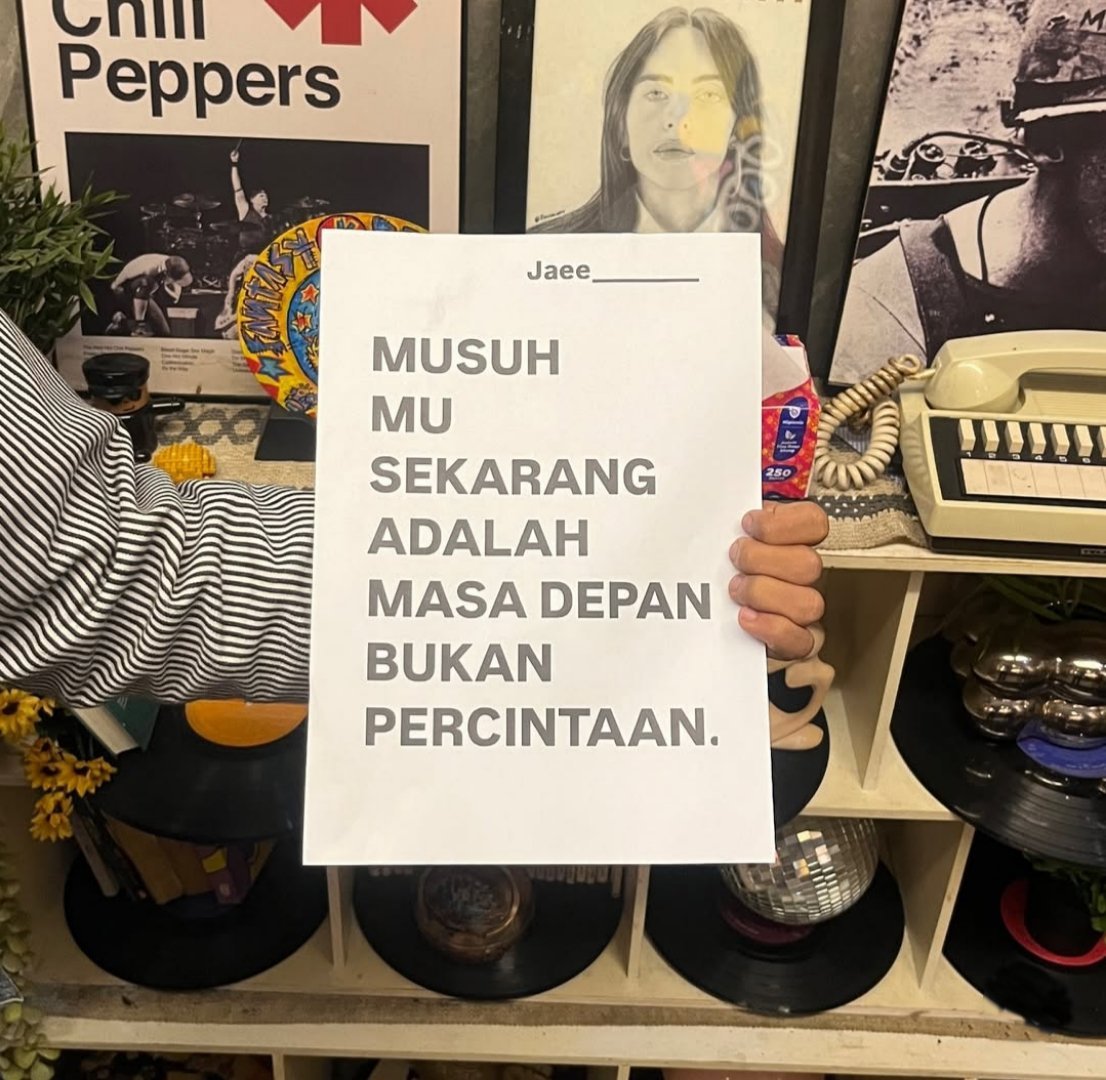 Chili
Peppers
Jaee_______
MUSUH
MU
SEKARANG
ADALAH
MASA DEPAN
BUKAN
PERCINTAAN.
250